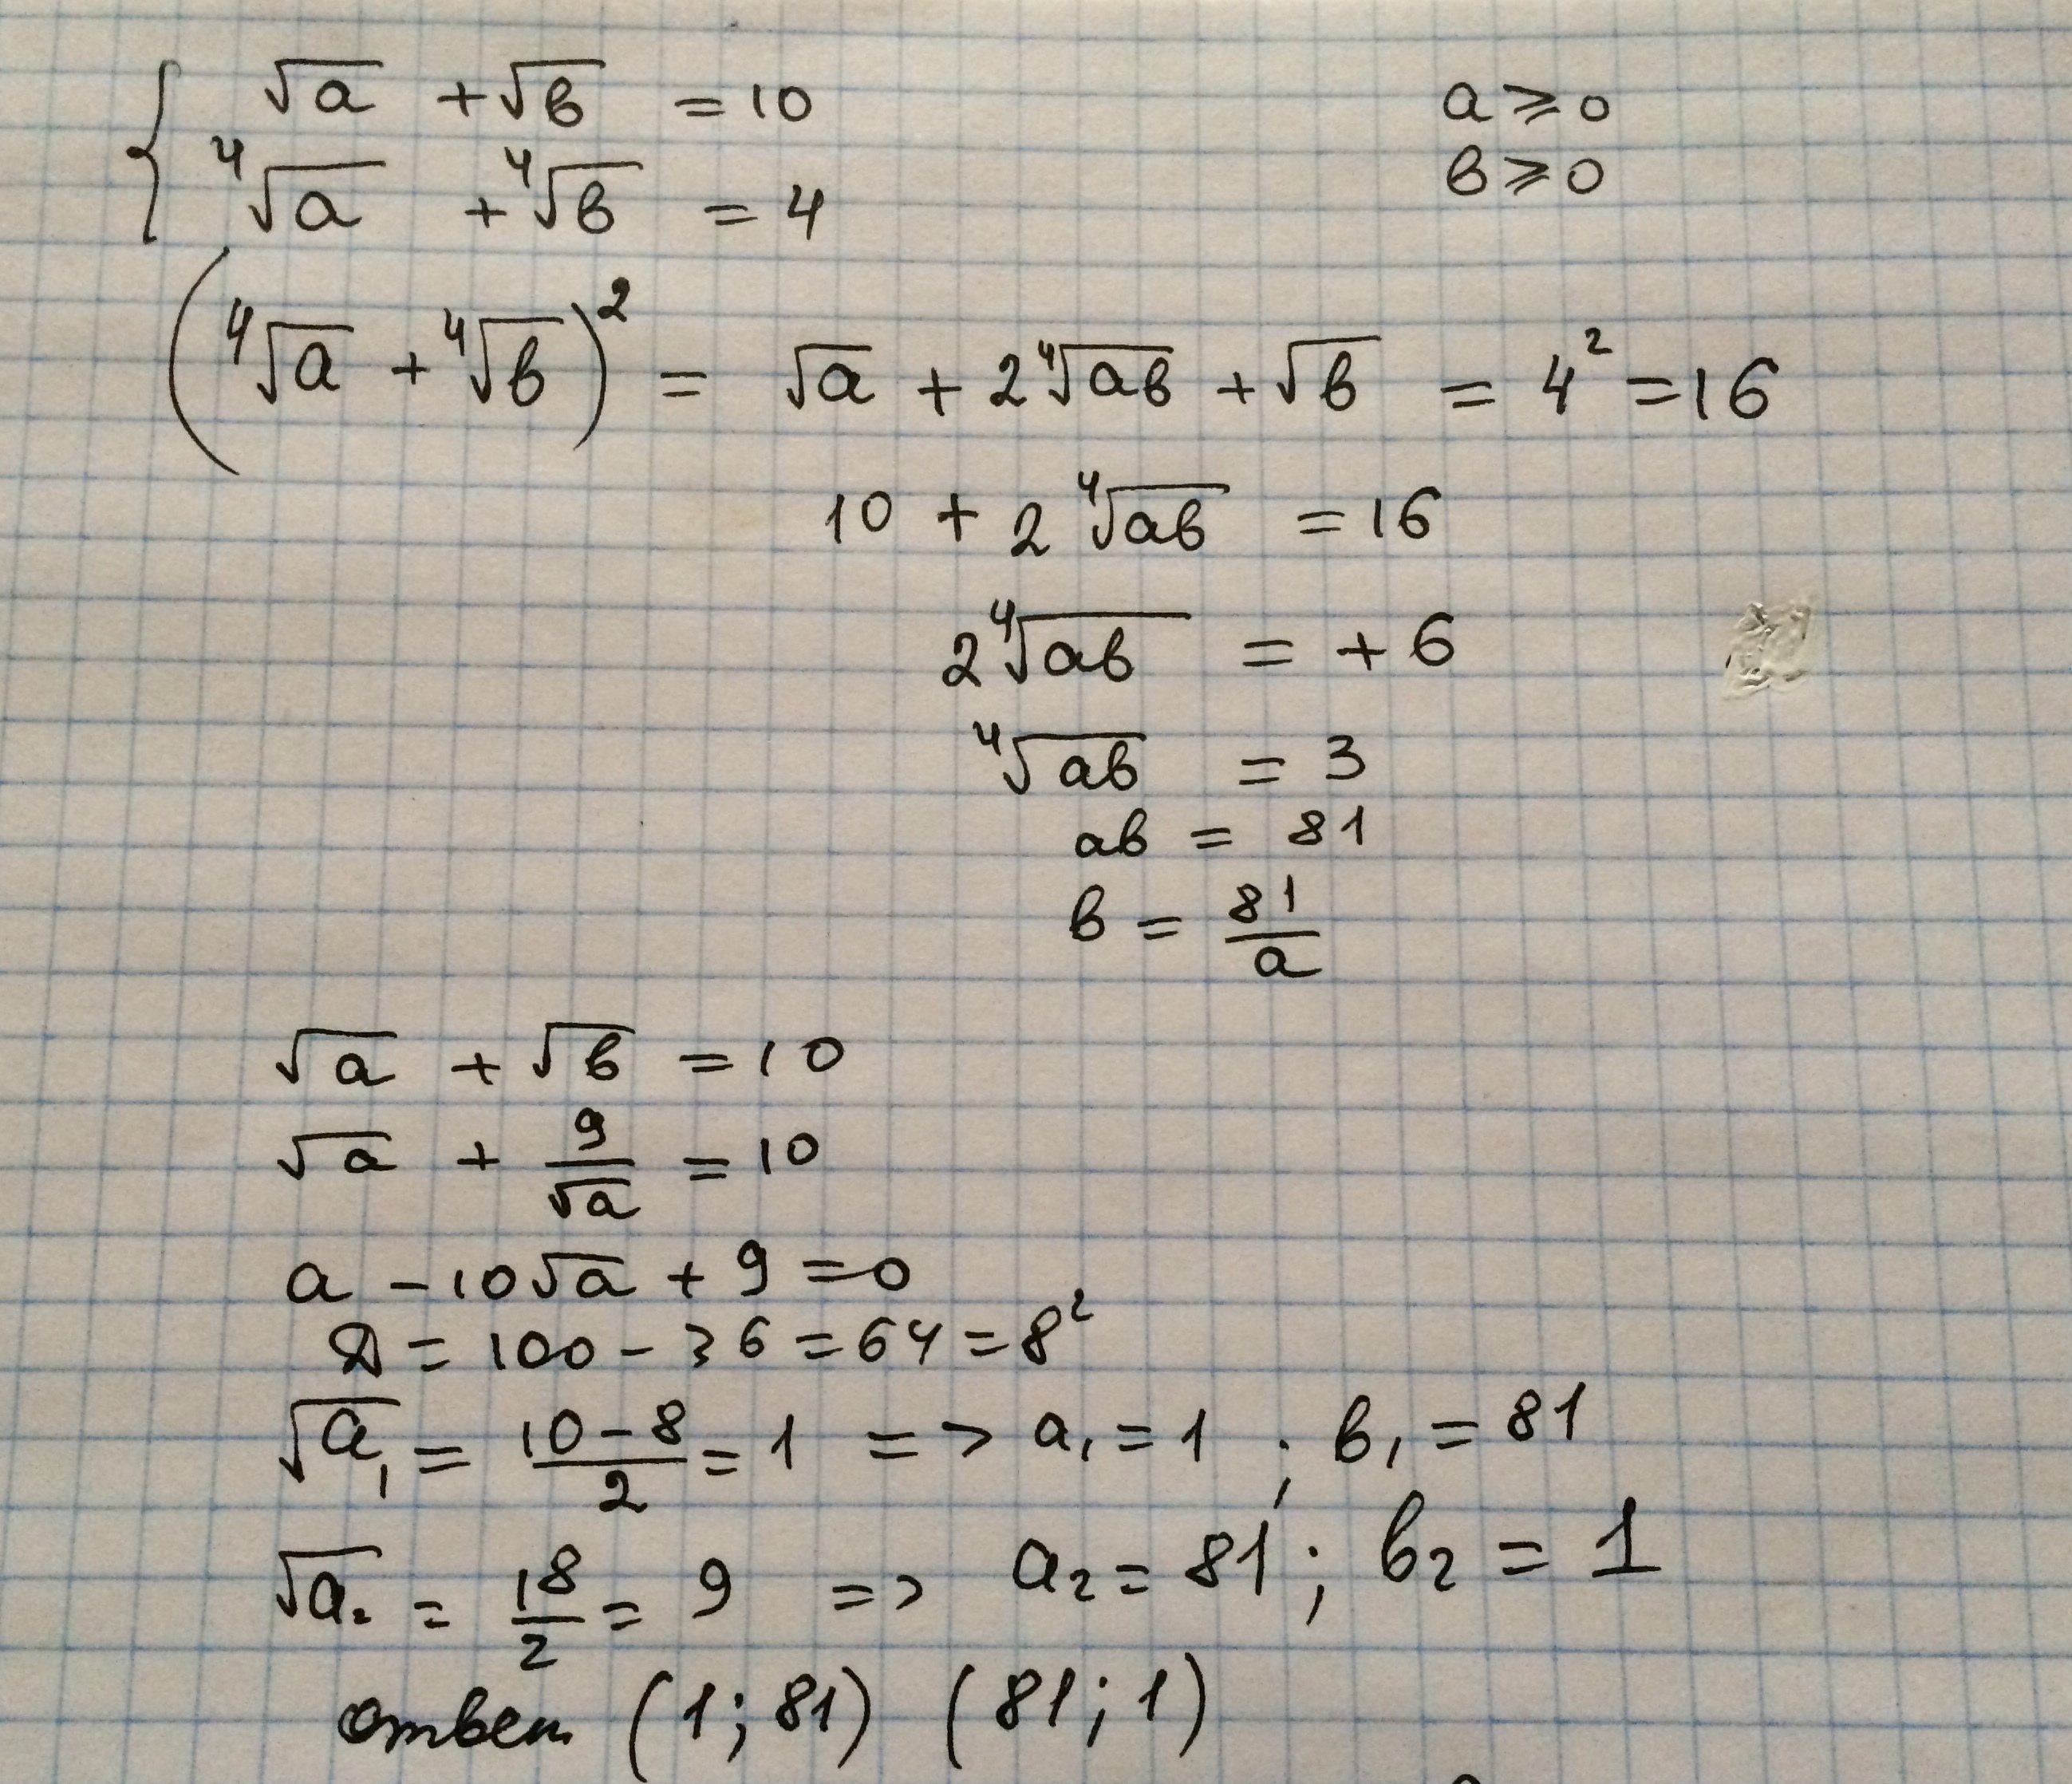 { √a + √в = 10    a ⩾ 0
⁴√a + ⁴√в = 4    в ⩾ 0
(⁴√a + ⁴√в)² = √a + 2⁴√aв + √в = 4² = 16
10 + 2⁴√aв = 16
2⁴√aв = + 6
⁴√aв = 3
aв = 81
в = 81/a
√a + √в = 10
√a + 9/√a = 10
a − 10√a + 9 = 0
Д = 100 − 36 = 64 = 8²
√a₁ = (10 − 8)/2 = 1 => a₁ = 1 ; в₁ = 81
√a₂ = 18/2 = 9 => a₂ = 81 ; в₂ = 1
ответ (1; 81) (81; 1)